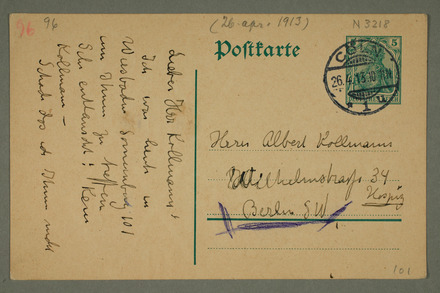 96
96
(26. apr. 1913)
N 3218
Postkarte
5
CÖLN
26.4.13.10
* 1 u
Lieber Herr Kollmann!
Ich war heute in
Wiesbaden Sonnenberg 101
um Ihnen zu treffen
Sehr enttäuscht! Kein
Kollmann –
Schade das ich Ihnen nicht
Herrn Albert Kollmann
Wilhelmstrasse 34
Hospiz
Berlin S.W
101